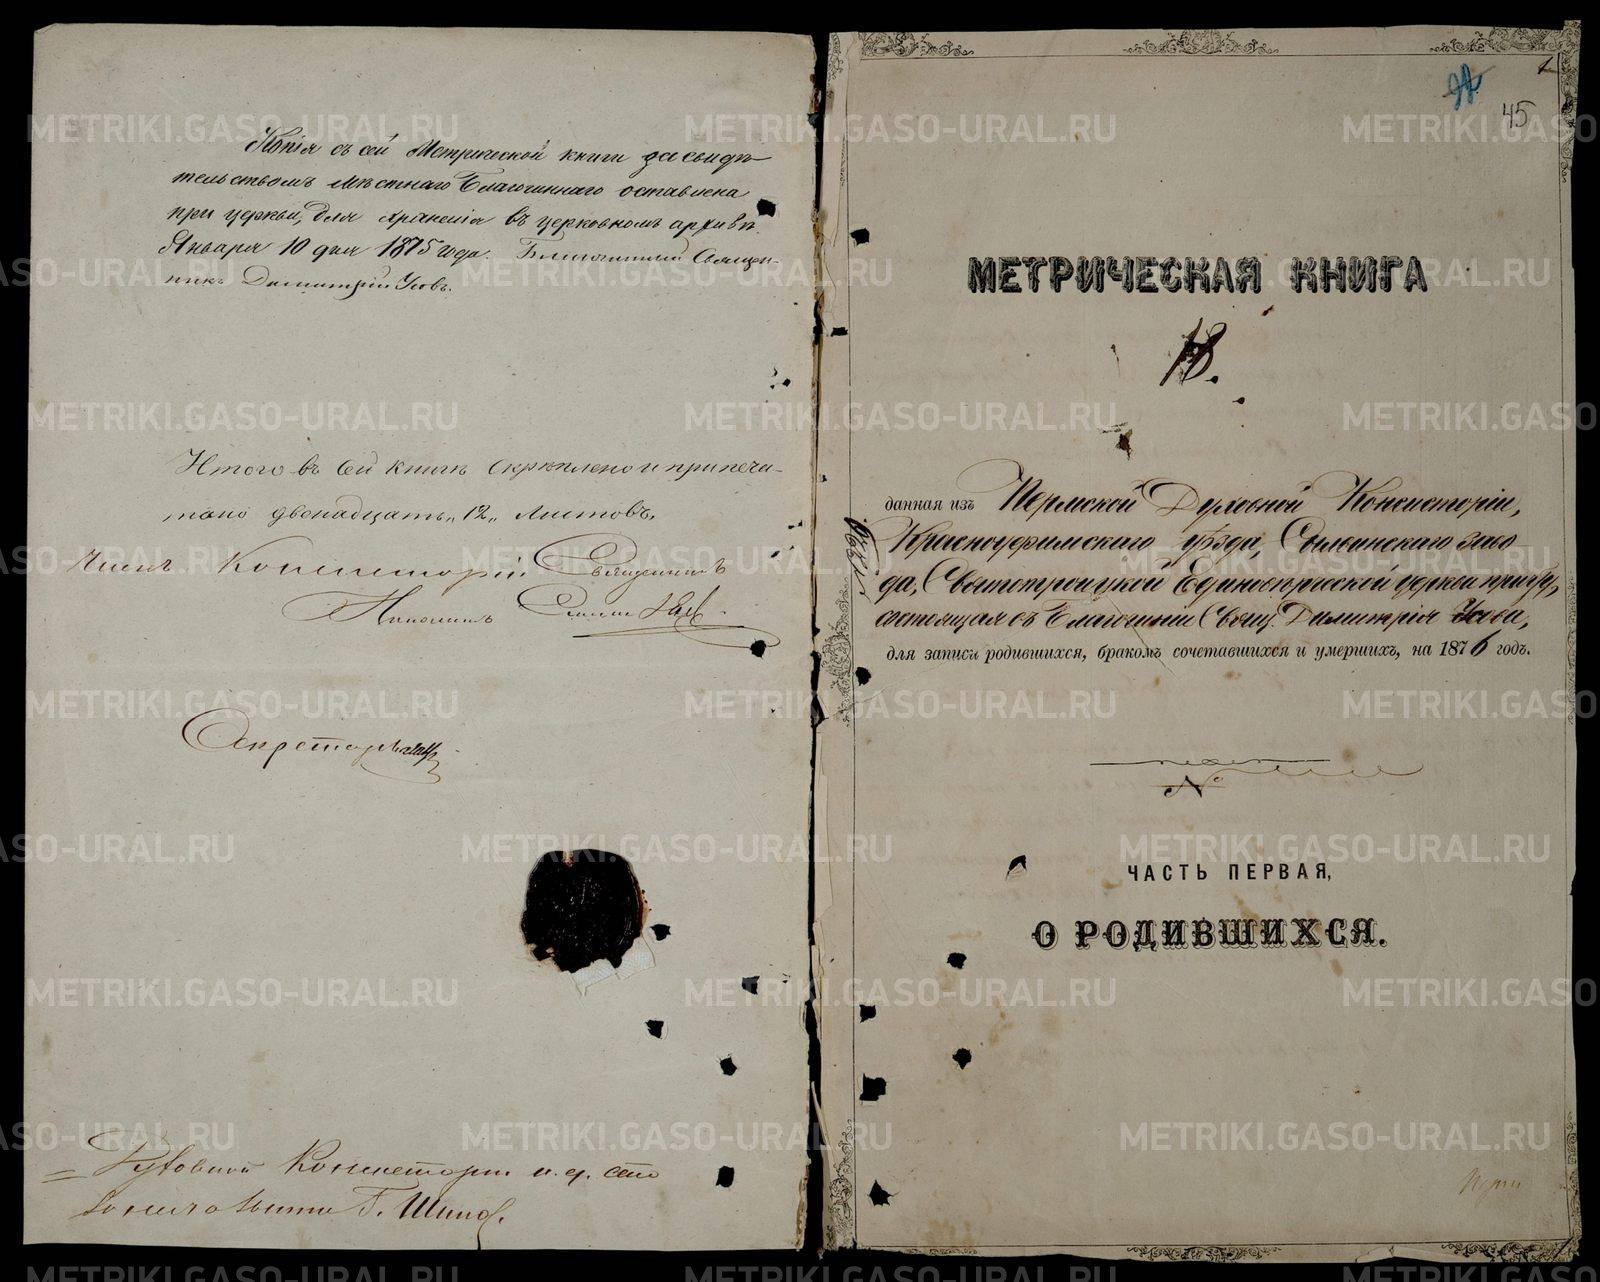 Копія съ сей Метрической книги за свидѣ-
тельствомъ мѣстнаго Благочиннаго оставлена
при церкви, для храненія въ церковномъ архивѣ.
Января 10 дня 1875 года. Благочинный Священ-
никъ Димитрій Усовъ.
Итого въ сей книгѣ скрѣплено и припеча-
тано двенадцать „12„ листовъ.
Членъ Консисторіи Священникъ
Секретарь
Духовной Консисторіи и. д. сто
МЕТРИЧЕСКАЯ КНИГА
45
18.
данная изъ Пермской Духовной Консисторіи,
Красноуфимскаго уѣзда, Сылвинскаго заво
да, Святотроицкой Единовѣрческой церкви причту,
состоящая въ Благочиніи Свящ. Димитрія Усова,
для записи родившихся, бракомъ сочетавшихся и умершихъ, на 1876 годъ.
№
ЧАСТЬ ПЕРВАЯ,
О РОДИВШИХСЯ.
METRIKI.GASO-URAL.RU